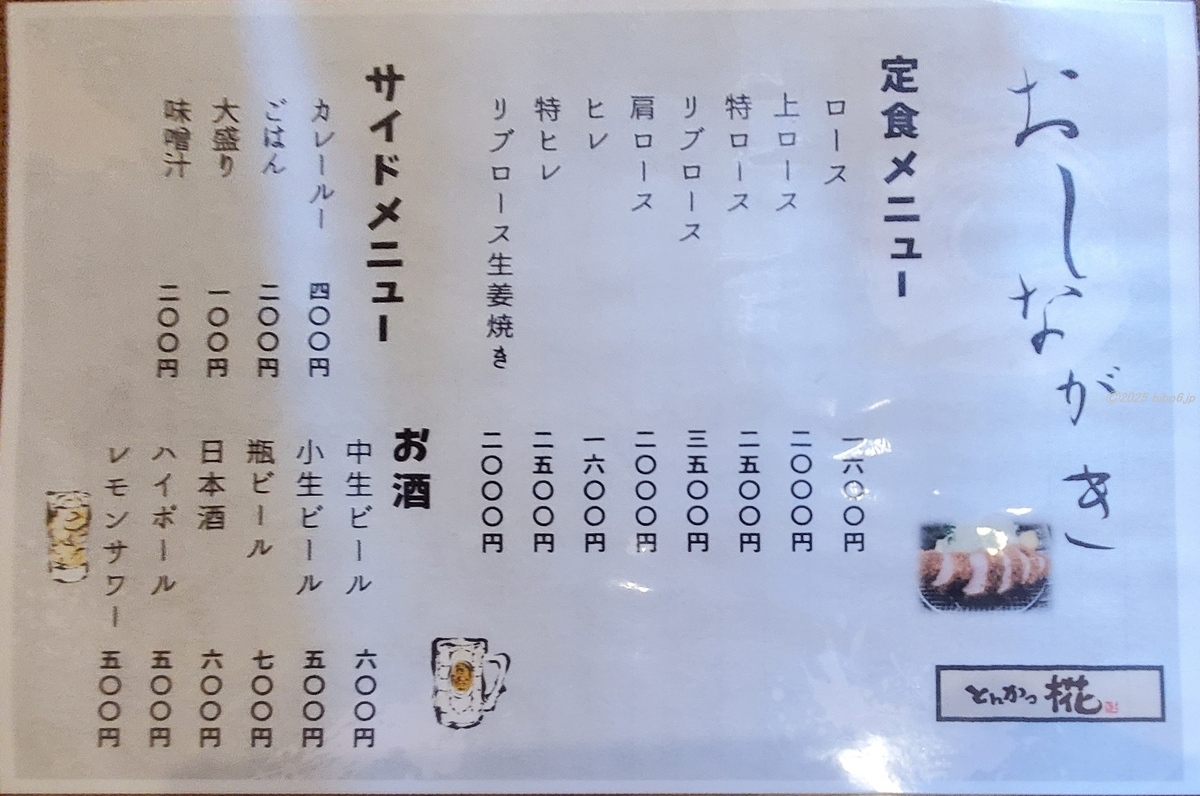 おしながき
とんかつ 糀
定食メニュー
ロース 一六〇〇円
上ロース 二〇〇〇円
特ロース 二五〇〇円
リブロース 三五〇〇円
肩ロース 二〇〇〇円
ヒレ 一六〇〇円
特ヒレ 二五〇〇円
リブロース生姜焼き 二〇〇〇円
サイドメニュー
カレールー 四〇〇円
ごはん 二〇〇円
大盛り 一〇〇円
味噌汁 二〇〇円
お酒
中生ビール 六〇〇円
小生ビール 五〇〇円
瓶ビール 七〇〇円
日本酒 六〇〇円
ハイボール 五〇〇円
レモンサワー 五〇〇円